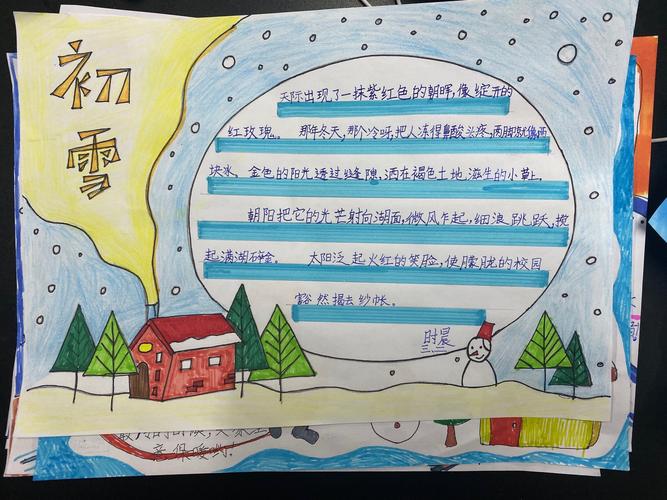 初雪
天际出现了一抹紫红色的朝晖,像绽开的
红玫瑰。那年冬天,那个冷呀,把人冻得鼻酸头疼,两脚就像两
块冰。金色的阳光透过缝隙,洒在褐色土地滋生的小草上.
朝阳把它的光芒射向湖面,微风乍起,细浪跳跃,搅
起满湖碎金。太阳泛起火红的笑脸,使朦胧的校园
豁然揭去纱帐。
时晨
三.二
意保暖哟!